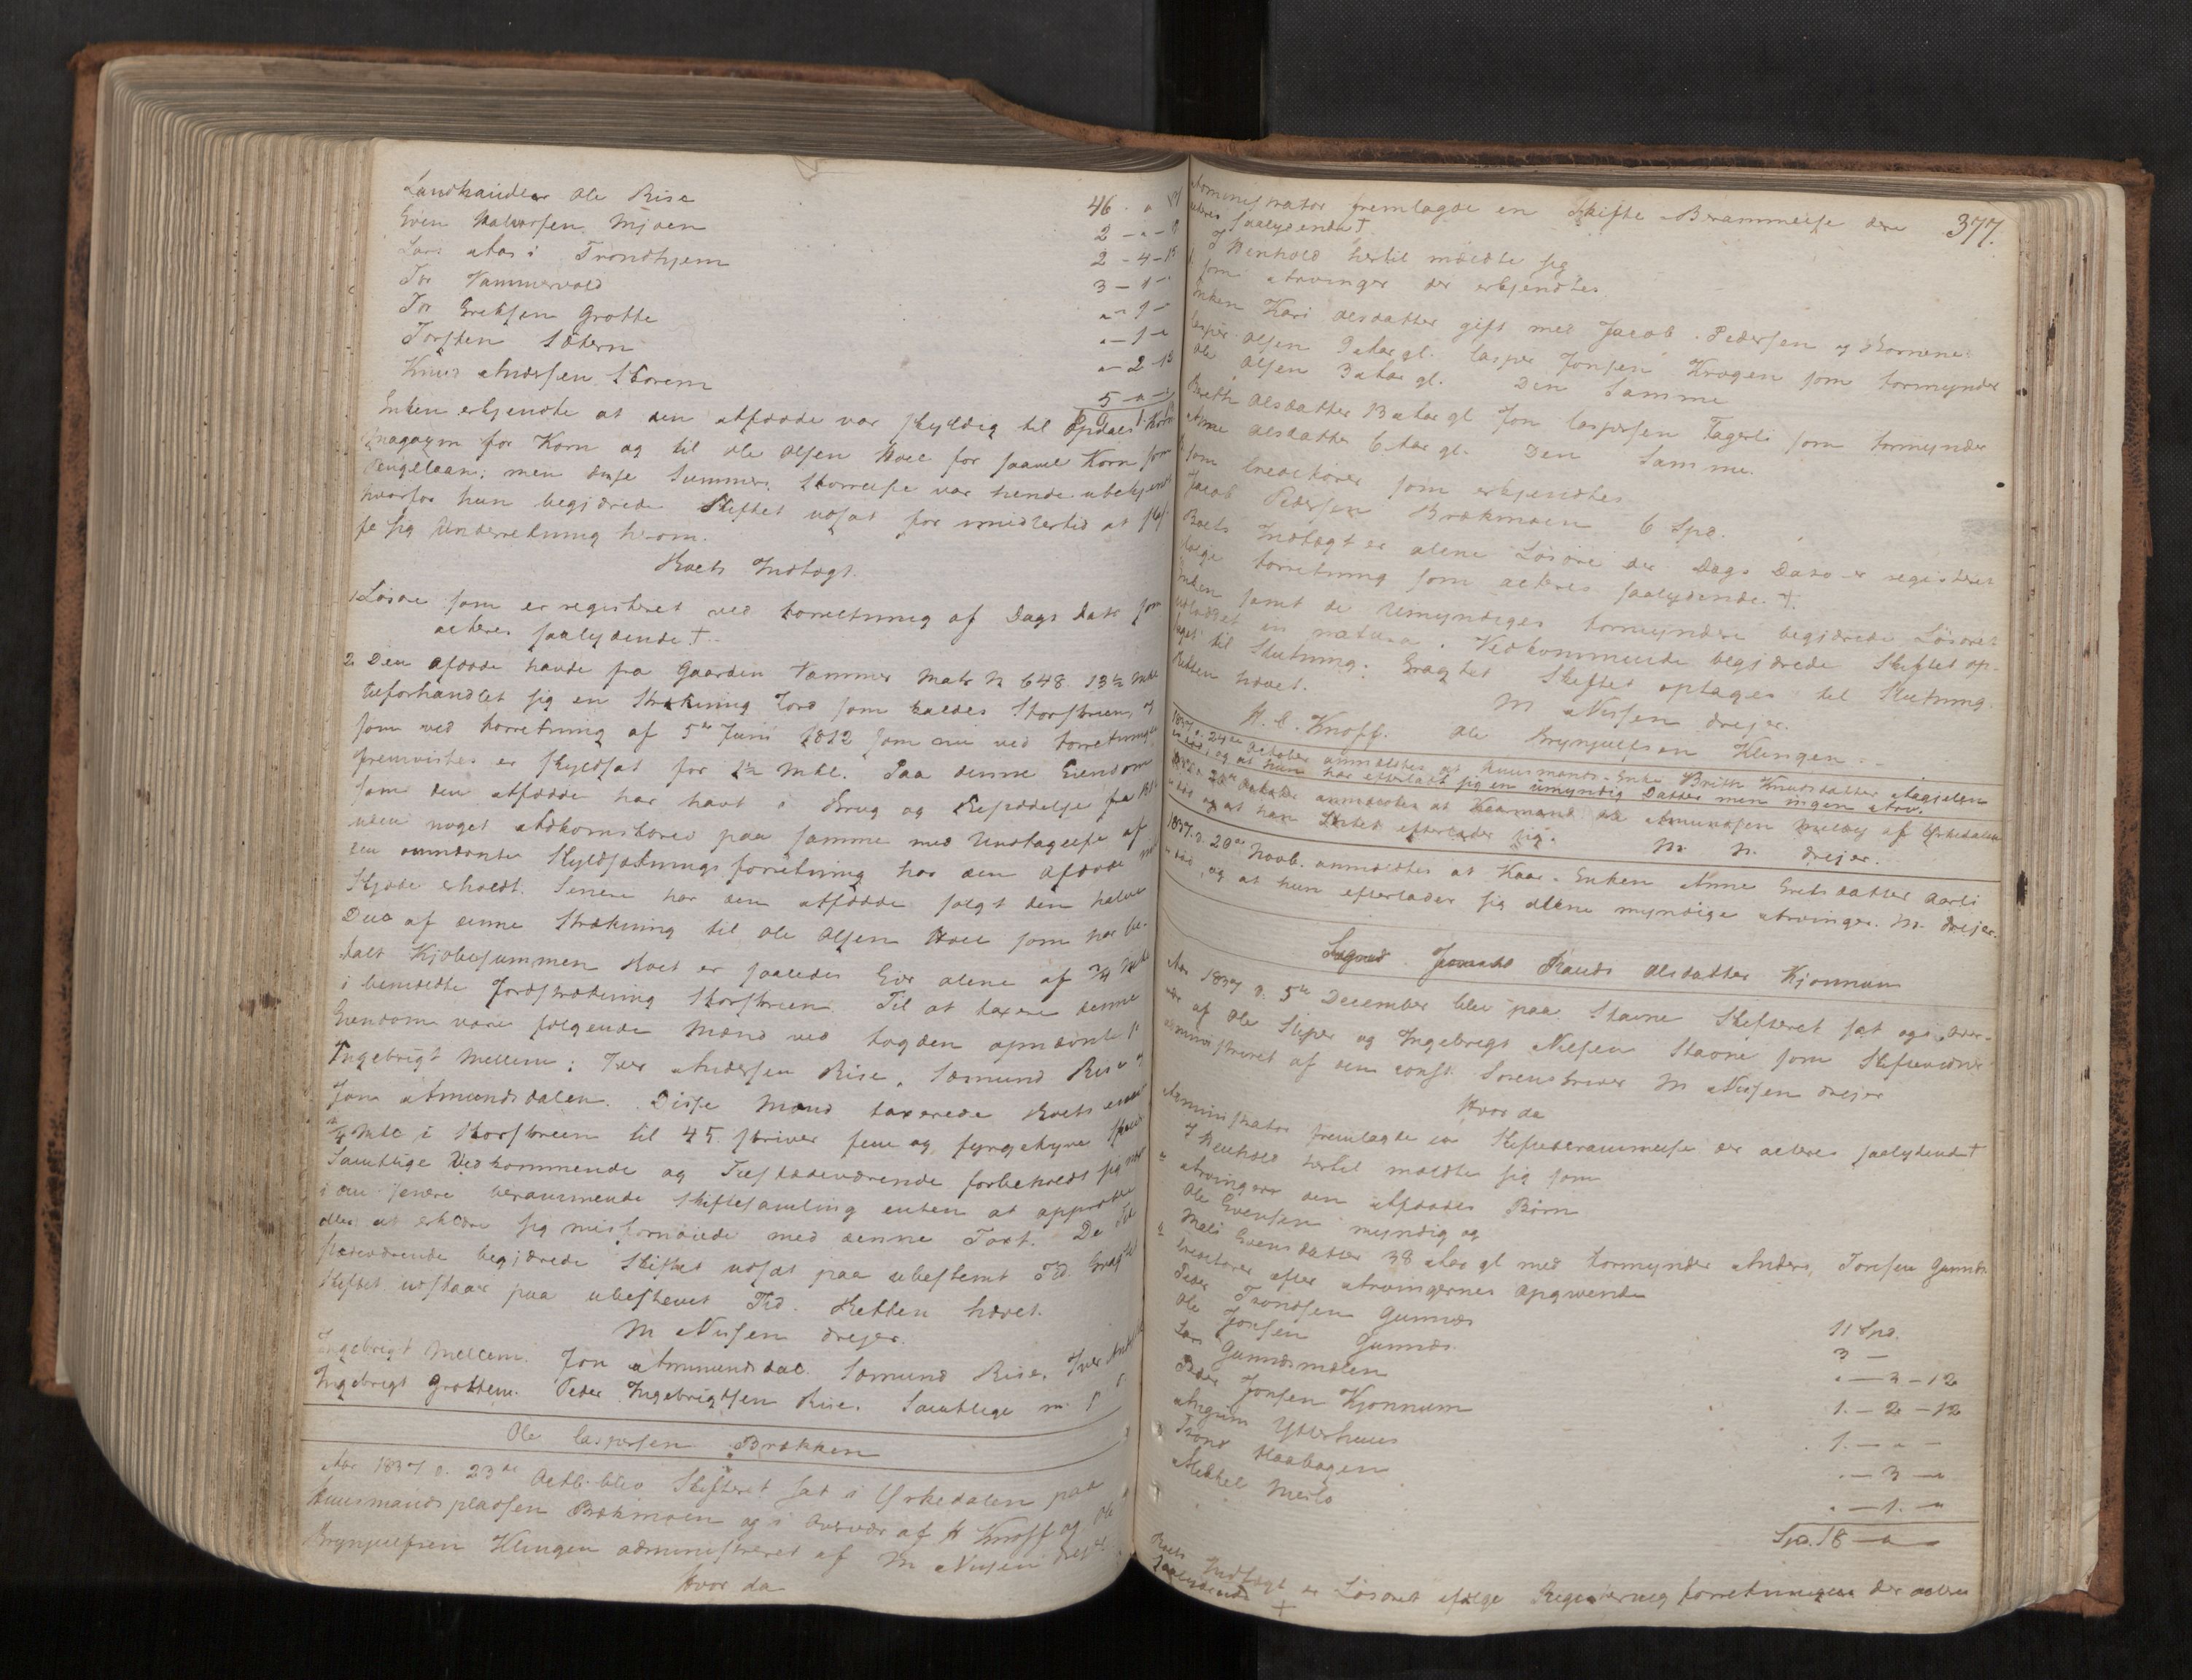 Landhandler Ole Rise 46 - "
Even Halvorsen Mjøen 2 - " - 8
Lars Aas i Trondhjem 2 - 4 - 15
Tor Vammervold 3 - 1 -
Tor Erichsen Grötte " - 1 -
Torsten Sætern " - 1 -
Knud Andersen Storem " - 2 - 13
5 - " -
Enken erkjendte at den Afdøde var skyldig til Opdals Korn
magazin for Korn og til Ole Olsen Hoel for saavel Korn som
Pengelaan; men disse Summers Størrelse var hende ubekjendt
hvorfor hun begjærede Skiftet udsat for imidlertid at
se sig Underretning herom.
Boets Indtægt.
1 Løsøre som er registeret ved Forretning af Dags Dato som
acteres saalydende †.
2 Den Afdøde havde fra Gaarden Vammer Matr N 648 13½ Mkl
tilforhandlet sig en Strækning Jord som kaldes Storstuen,
som ved Forretning af 5te Juni 1812 som nu ved Forretningen
fremvistes er skyldsat for 1½ Mkl. Paa denne Eiendom
som den Afdøde har havt i Brug og Besiddelse fra
uden noget Adkomstbrev paa samme med Undtagelse af
den omnævnte Skyldsætningsforretning har den Afdøde
Skjøde erholdt. Senere har den Afdøde solgt den halve
Deel af denne Strækning til Ole Olsen Hoel som har be-
talt Kjøbesummen Boet er saaledes Eier alene af ¾ Mkl
i bemeldte Jordstrækning Storstuen. Til at taxere denne
Eiendom vare følgende Mænd ved Fogden opnævnte
Ingebrigt Mellem; Iver Andersen Rise, Sæmund Rise
Jon Amundsdalen. Disse Mænd taxerede Boets
¾ Mkl i Storstuen til 45 skriver fem og fyrgetyve
Samtlige Vedkommende og Tilstædeværende forbeholdt sig
i en senere berammende Skiftesamling enten at approbere
eller at erklære sig misfornøiede med denne Taxt. De
stædeværende begjærede Skiftet udsat paa ubestemt Tid. Eragtet
Skiftet udstaar paa ubestemt Tid. Retten hævet.
M Nissen Drejer.
Ingebrigt Mellem. Jon Ammundsdal. Sæmund Rise, Iver
Ingebrigt Grøttem. Peder Ingebrigtsen Rise. Samtlige m. P
Ole Caspersen Brækken
Aar 1837 d. 23de Octb. blev Skifteret sat i Yrkedalen paa
Huusmandspladsen Brækmoen og i Overvær af H Knoff og Ole
Brynjulfsen Klingen administreret af M Nissen Drejer
Hvor da
377.
Administrator fremlagde en Skifte-Berammelse der
acteres saalydende †.
I Henhold hertil mældte sig
som Arvinger der erkjendtes
Enken Kari Olsdatter gift med Jacob Pedersen og Børnene:
Casper Olsen 9 Aar gl. Casper Jonsen Krogen som Formynder
Ole Olsen 3 Aar gl. Den Samme
Breth Olsdatter 13 Aar gl Jon Caspersen Fagerli som Formynder
Anne Olsdatter 6 Aar gl. Den Samme.
som Creditorer som erkjendtes
Jacob Pedersen Brækmoen 6 Spd.
Boets Indtægt er alene Løsøre der Dags Dato er registeret
ifølge Forretning som acteres saalydende. †.
Enken samt de Umyndiges Formyndere begjærede Løsøret
udloddet in natura. Vedkommende begjærede Skiftet op-
taget til Slutning. Eragtet Skiftet optages til Slutning.
Retten hævet.
M Nissen Drejer.
H. C. Knoff. Ole Brynjulfsen Klingen.
1837 d. 24de October anmeldtes at Huusmands-Enke Brith Knudsdatter
er død, og at hun har efterladt sig en umyndig Datter men ingen Arv.
d. 28de October anmældtes at Keemand Ole Amundsen Meldey af Yrkedalen
er død og at han Intet efterlader sig. M. N. Drejer.
1837. d. 20de Novb. anmeldtes at Kaar-Enken Anne Erichsdatter Aarli
er død, og at hun efterlader sig alene myndige Arvinger. M. Drejer.
Rands Olsdatter Kjønnum
Aar 1837 d. 5te December blev paa Stavne Skifteret sat og i Over-
vær af Ole Sliper og Ingebrigt Nielsen Stavne som Skiftevidner
administreret af den const. Sorenskriver M Nissen Drejer
Hvor da
Administrator fremlagde en Skifteberammelse der acteres saalydende †
I Henhold hertil mældte sig som
Arvinger den Afdødes Børn
Ole Evensen myndig og
Mali Evensdatter 38 Aar gl med Formynder Anders Toresen Gunnes
Creditorer efter Arvingernes Opgivende
Peder Trondsen Gunnæs 11 Spd.
Ole Jonsen Gunnæs 3 —
Lars Gunnesmælen " — 3 - 12
Peder Jonsen Kjønnum 1. — 2 - 12
Angrim Ytterhuus 1. — " -
Trond Haabagen . — 3 - "
Mikkel Meslo " — 1. — "
Spd. 18 — " —
Boets Indtægt er Løsøret ifølge Registeringsforretningen der acteres
saalydende †